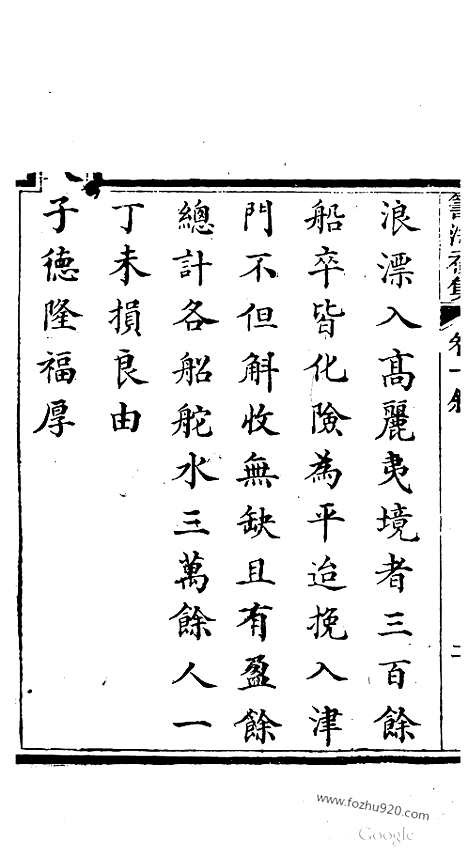 浪漂入髙麗夷境者三百餘
船卒皆化險為平迨挽入津
門不但斛收無缺且有盈餘
總計各船舵水三萬餘人一
丁未損良由
子德隆福厚
www.fozhu920.com
Google